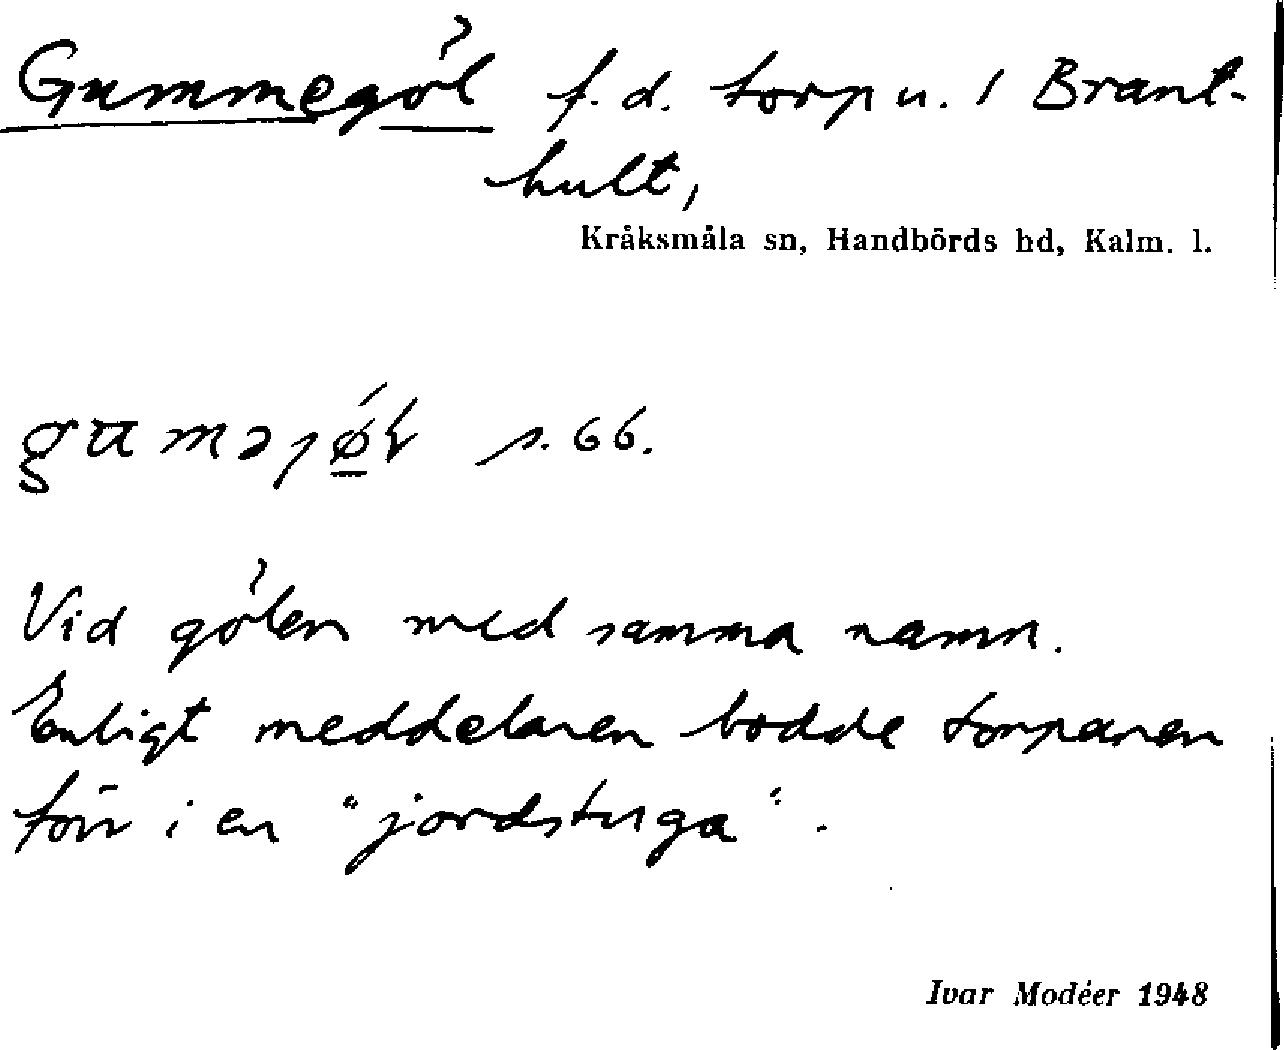 Gummegöl f. d. torp u. 1 Brant-
hult,
Kråksmåla sn, Handbörds hd, Kalm. l.
s. 66.
Vid gölen med samma namn.
Enligt meddelaren bodde torparen
förr i en "jordstuga".
Ivar Modéer 1948